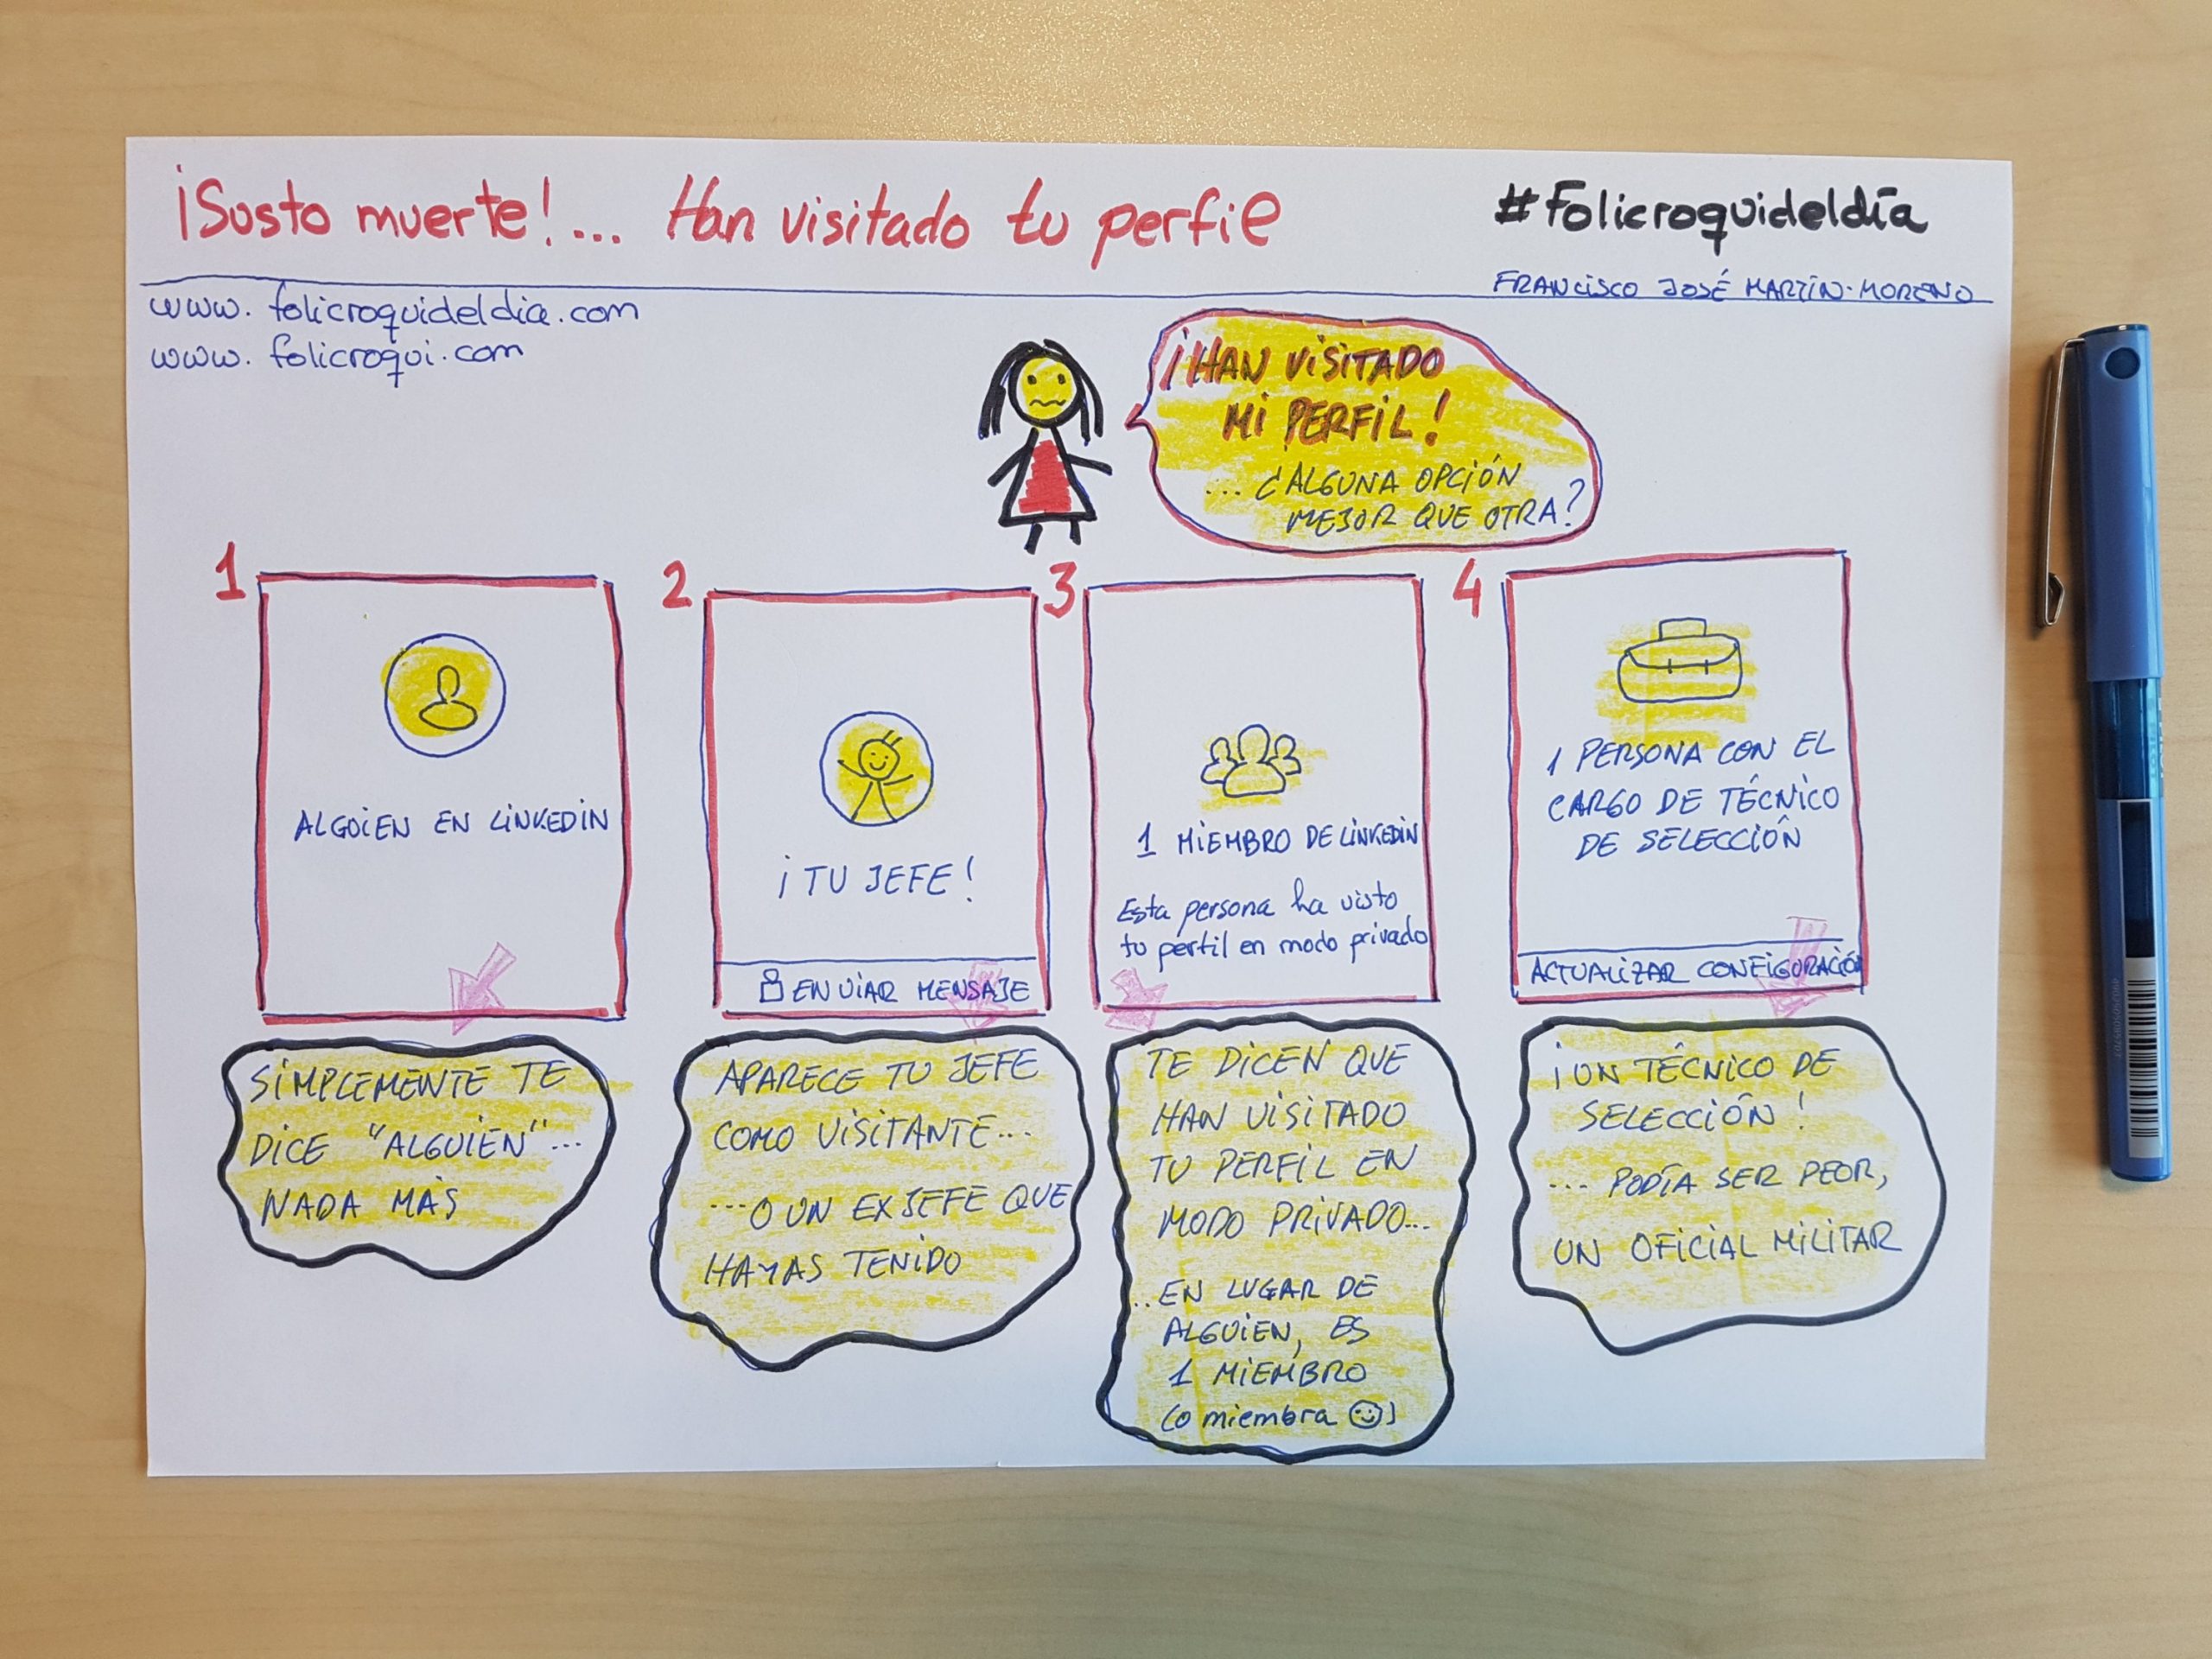 ¡Susto muerte!... Han visitado tu perfil
#Folicroquideldía
FRANCISCO JOSÉ MARTÍN-MORENO
www.folicroquideldia.com
www.folicroqui.com
¡HAN VISITADO
MI PERFIL!
... ¿ALGUNA OPCIÓN
MEJOR QUE OTRA?
1
ALGUIEN EN LINKEDIN
SIMPLEMENTE TE
DICE "ALGUIEN"...
NADA MÁS
2
¡TU JEFE!
ENVIAR MENSAJE
APARECE TU JEFE
COMO VISITANTE...
...O UN EXJEFE QUE
HAYAS TENIDO
3
1 MIEMBRO DE LINKEDIN
Esta persona ha visto
tu perfil en modo privado
TE DICEN QUE
HAN VISITADO
TU PERFIL EN
MODO PRIVADO...
..EN LUGAR DE
ALGUIEN, ES
1 MIEMBRO
(o miembra ☺)
4
1 PERSONA CON EL
CARGO DE TÉCNICO
DE SELECCIÓN
ACTUALIZAR CONFIGURACIÓN
¡UN TÉCNICO DE
SELECCIÓN!
... PODÍA SER PEOR,
UN OFICIAL MILITAR